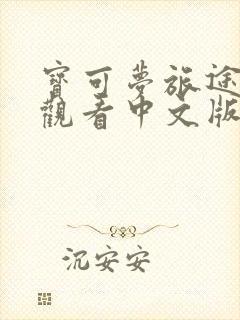 寶可夢旅途
觀看中文版
沉安安